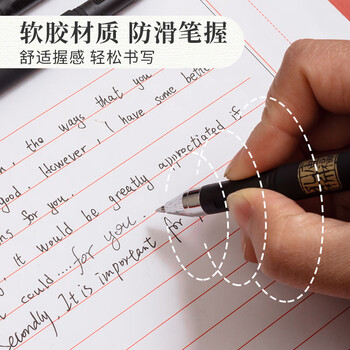 软胶材质 防滑笔握
舒适握感 轻松书写
, the ways that you
good. However, I have some better
ns for you.
, it would be greatly appreciated if
could....for you.
Secondly, It is important for